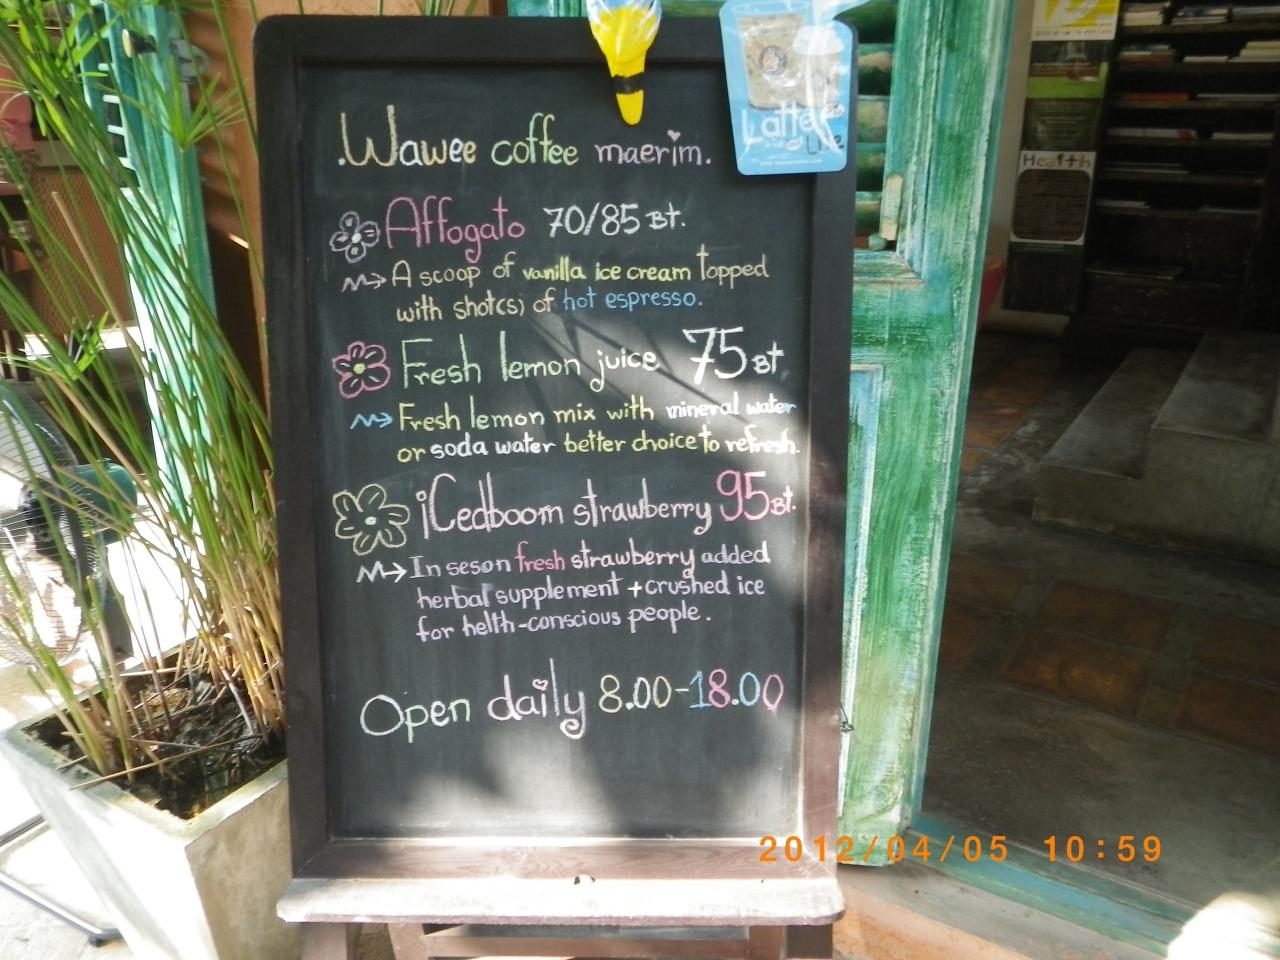 .Wawee coffee maerim.
Affogato 70/85 Bt.
A scoop of vanilla ice cream topped
with shot(s) of hot espresso.
Fresh lemon juice 75 Bt
Fresh lemon mix with mineral water
or soda water better choice to refresh.
iCedboom strawberry 95 Bt.
In seson fresh strawberry added
herbal supplement + crushed ice
for helth-conscious people.
Open daily 8.00-18.00
Latte
Live
Health
2012/04/05 10:59